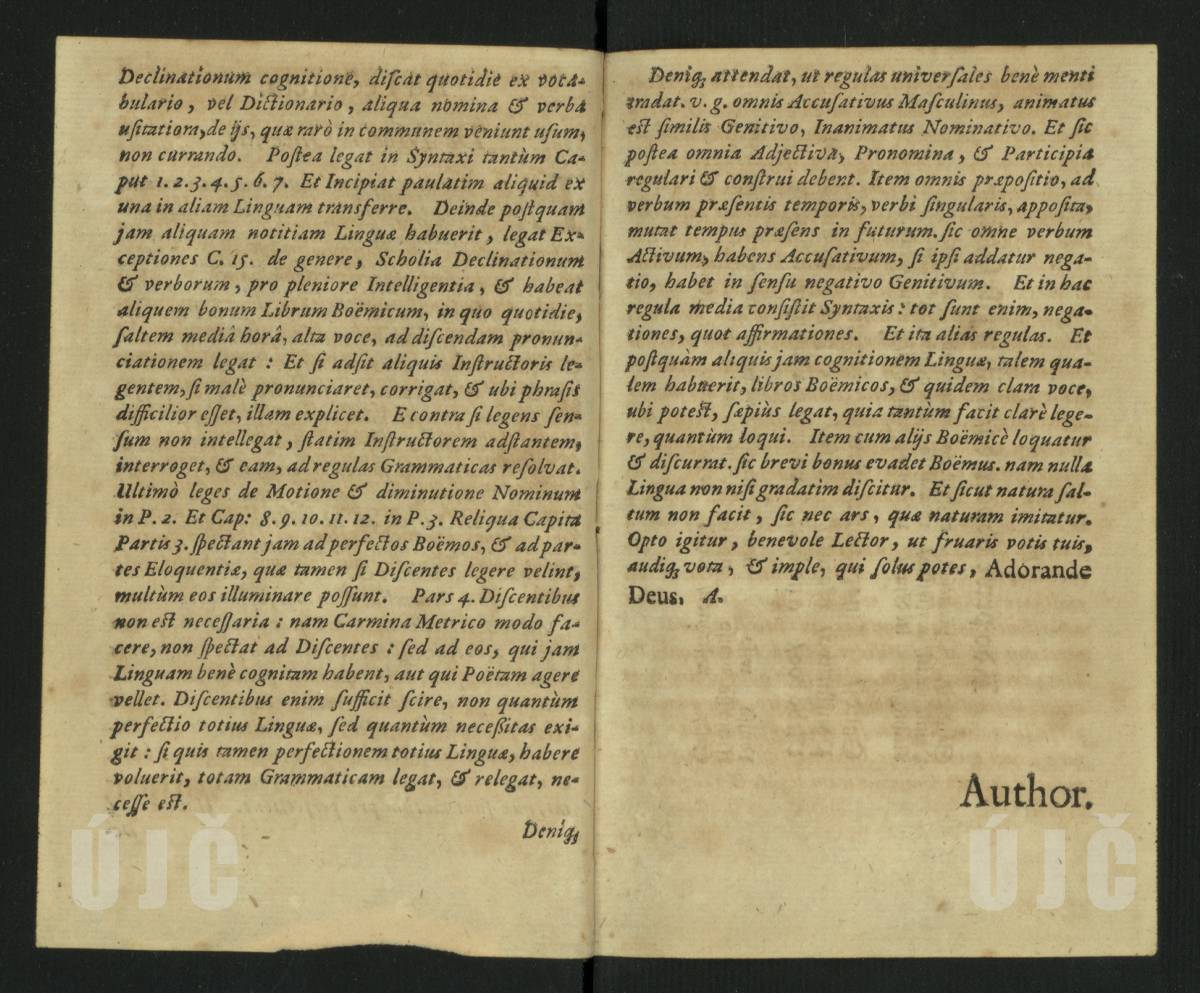 Declinationum cognitione, diſcat quotidie ex voca-
bulario, vel Dictionario, aliqua nomina & verba
uſitatiora, de ijs, quæ rarò in communem veniunt uſum,
non currando. Poſtea legat in Syntaxi tantùm Ca-
put 1. 2. 3. 4. 5. 6. 7. Et Incipiat paulatim aliquid ex
una in aliam Linguam transferre. Deinde poſtquam
jam aliquam notitiam Linguæ habuerit, legat Ex-
ceptiones C. 15. de genere, Scholia Declinationum
& verborum, pro pleniore Intelligentia, & habeat
aliquem bonum Librum Boëmicum, in quo quotidie,
ſaltem mediâ horâ, alta voce, ad diſcendam pronun-
ciationem legat : Et ſi adſit aliquis Inſtructoris le-
gentem, ſi malè pronunciaret, corrigat, & ubi phraſis
difficilior eſſet, illam explicet. E contra ſi legens ſen-
ſum non intellegat, ſtatim Inſtructorem adſtantem,
interroget, & eam, ad regulas Grammaticas reſolvat.
Ultimò leges de Motione & diminutione Nominum
in P. 2. Et Cap: 8. 9. 10. 11. 12. in P. 3. Reliqua Capita
Partis 3. ſpectant jam ad perfectos Boëmos, & ad par-
tes Eloquentiæ, quæ tamen ſi Diſcentes legere velint,
multùm eos illuminare poſſunt. Pars 4. Diſcentibus
non eſt neceſſaria : nam Carmina Metrico modo fa-
cere, non ſpectat ad Diſcentes : ſed ad eos, qui jam
Linguam benè cognitam habent, aut qui Poëtam agere
vellet. Diſcentibus enim ſufficit ſcire, non quantùm
perfectio totius Linguæ, ſed quantùm neceßitas exi-
git : ſi quis tamen perfectionem totius Linguæ, habere
voluerit, totam Grammaticam legat, & relegat, ne-
ceſſe eſt.
Deniq;
Deniq; attendat, ut regulas univerſales benè menti
tradat. v. g. omnis Accuſativus Maſculinus, animatus
eſt ſimilis Genitivo, Inanimatus Nominativo. Et ſic
poſtea omnia Adjectiva, Pronomina, & Participia
regulari & conſtrui debent. Item omnis præpoſitio, ad
verbum præſentis temporis, verbi ſingularis, appoſita,
mutat tempus præſens in futurum. ſic omne verbum
Activum, habens Accuſativum, ſi ipſi addatur nega-
tio, habet in ſenſu negativo Genitivum. Et in hac
regula media conſiſtit Syntaxis : tot ſunt enim, nega-
tiones, quot affirmationes. Et ita alias regulas. Et
poſtquàm aliquis jam cognitionem Linguæ, talem qua-
lem habuerit, libros Boëmicos, & quidem clara voce,
ubi poteſt, ſæpiùs legat, quia tantùm facit clarè lege-
re, quantùm loqui. Item cum alijs Boëmicè loquatur
& diſcurrat. ſic brevi bonus evadet Boëmus. nam nulla
Lingua non niſi gradatim diſcitur. Et ſicut natura ſal-
tum non facit, ſic nec ars, quæ naturam imitatur.
Opto igitur, benevole Lector, ut fruaris votis tuis,
audiq; vota, & imple, qui ſolus potes, Adorande
Deus. A.
Author.
ÚJČ
ÚJČ